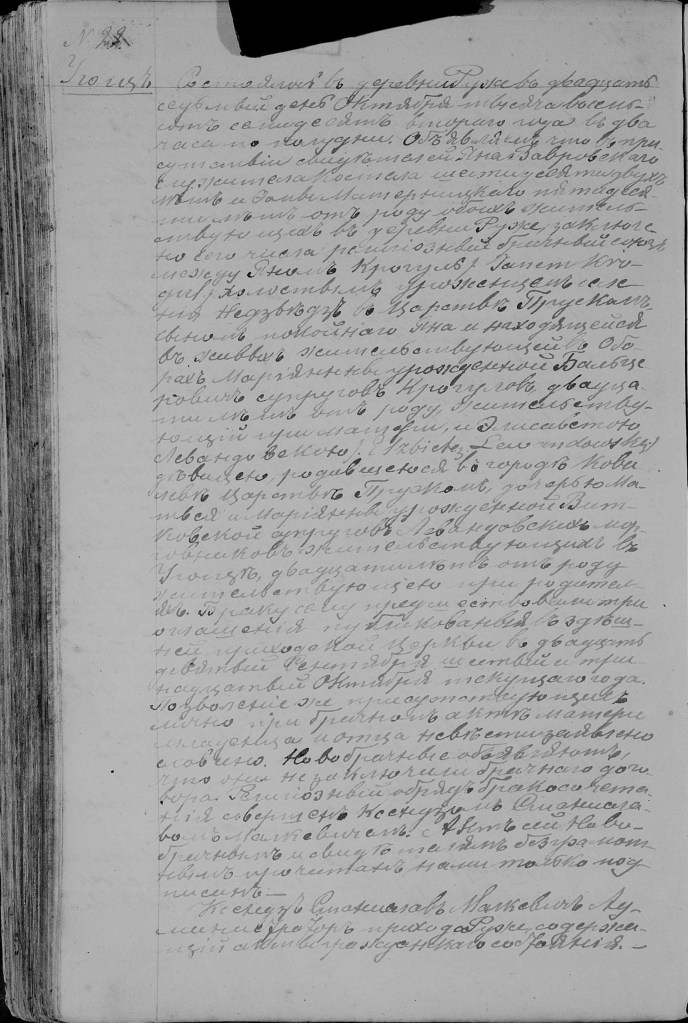 N. 22.
Угощъ Состоялось въ деревни Руже въ двадцать
седьмый день Октября тысяча восемь
сотъ семьдесятъ втораго года въ два
часа по полудни. Объявляемъ что въ при
сутствіи свидѣтелей Яна Завровскаго
служителя костела шестидесяти двухъ
лѣтъ и Томы Матерницкаго пятьдеся
ти лѣтъ отъ роду обоихъ житель
ствующихъ въ деревни Руже, заключе
но сего числа религіозный брачный союзъ
между Яномъ Крогуль / Janem Kro-
gul / холостымъ урожденцемъ села
Недзвѣдзъ въ Царствѣ Прускамъ,
сыномъ покойнаго Яна и находящейся
въ живыхъ жительствующей въ Обо-
рахъ Маріянны урожденной Бальце
ровичъ супруговъ Крогуловъ двадца-
ти лѣтъ отъ роду, жительству-
ющій при матери, и Элисабетою
Левандовскою / Elżbietą Lewandowską /
дѣвицею, родившеюся въ городѣ Кова
левѣ Царствѣ Прускомъ, дочерью Ма-
тѣея и Маріянны урожденной Вит-
ковской супруговъ Левандовскихъ
жительствующихъ въ
Угощѣ, двадцати лѣтъ отъ роду
жительствующею при родител-
яхъ. Браку сему предшествовали три
оглашенія публикованныя въ здѣш-
ней приходской Церкви въ двадцать
девятый Сентября шестый и три
надцатый Октября текущаго года.
Позволеніе же присутствующихъ
лично при брачномъ актѣ матери
младенца и отца невѣсти заявлено
словесно. Новобрачные объявляютъ,
что они не заключили брачнаго дого-
вора. Религіозный обрядъ бракосочета
нія совершенъ Ксендзомъ Станисла-
вомъ Малкевичемъ. Актъ сей Ново-
брачнымъ и свидѣтелямъ безграмот
нымъ прочитанъ нами только под
писанъ —
Ксендзъ Станиславъ Малкевичъ Ад-
министраторъ прихода Руже, содержа-
щій акты гражданскаго состоянія. —